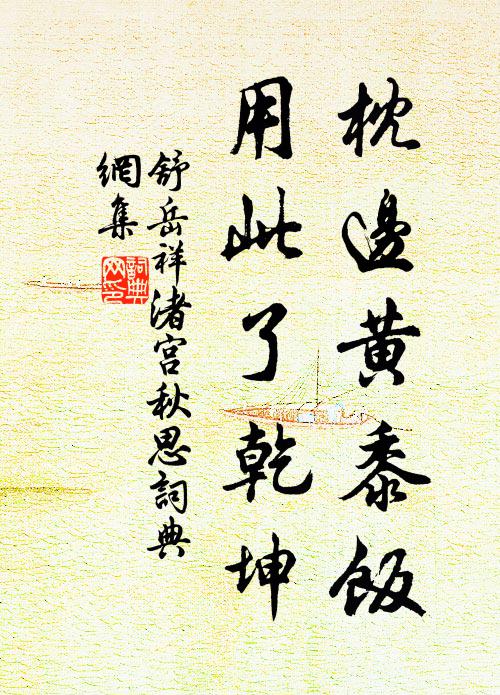 枕邊黃黍飯
用此了乾坤
舒岳祥渚宮秋思詞典
網集
詞典
网